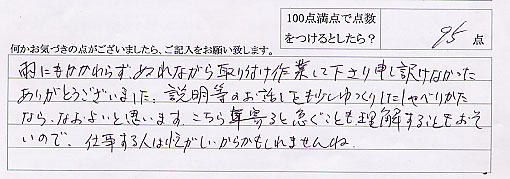 100点満点で点数
をつけるとしたら?
95点
何かお気づきの点がございましたら、ご記入をお願い致します。
雨にもかかわらず、ぬれながら取り付け作業して下さり申し訳けなかった
ありがとうございました、説明等のお話しをも少しゆっくりしたしゃべりかた
なら、なおよいと思います。こちら年寄ると急ぐことも理解することもおそ
いので、仕事する人は忙がしいからかもしれませんね